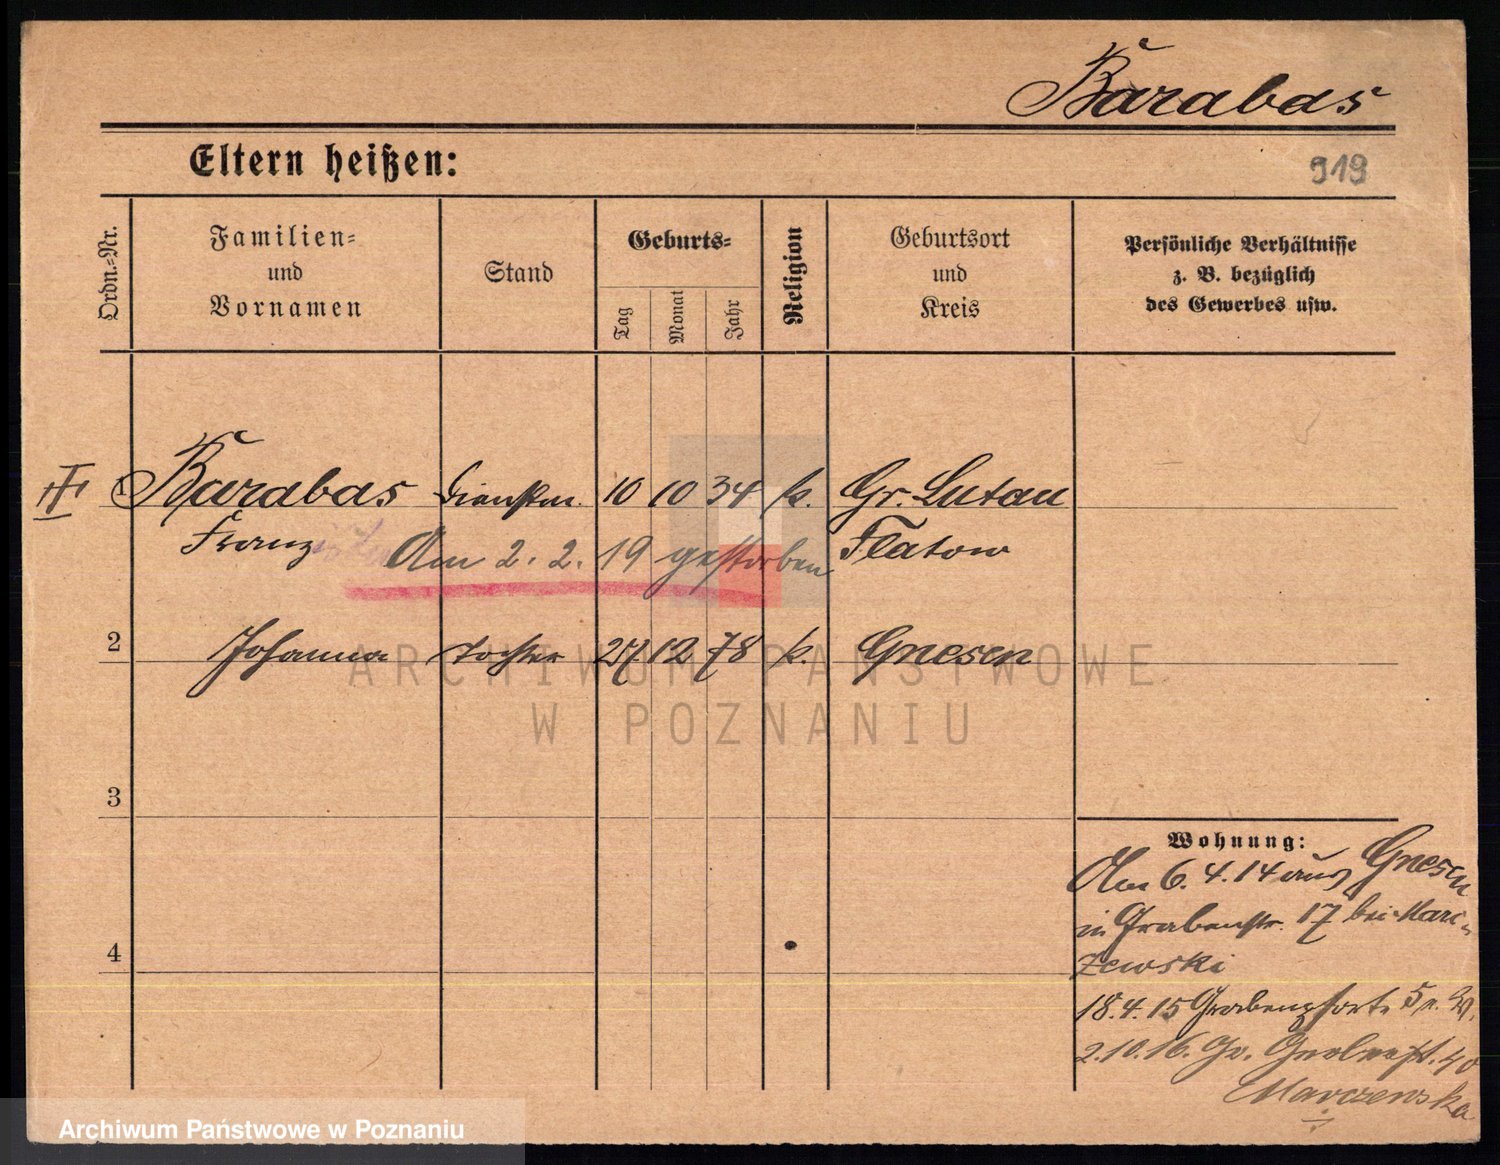 Barabas
Eltern heißen:
919
Ordn.-Nr.
Familien-
und
Vornamen
Stand
Geburts-
Tag
Monat
Jahr
Religion
Geburtsort
und
Kreis
Persönliche Verhältnisse
z. B. bezüglich
des Gewerbes usw.
1 Barabas Dienstm. 10 10 34 k. Gr. Lutau
Franz Flatow
Am 2. 2. 19 gestorben
2 Johanna Tochter 27 12 78 k. Gnesen
3
4
Wohnung:
Am 6. 4. 14 aus Gnesen
in Grabenstr. 17 bei Marc-
zewski
18. 4. 15 Grabenpforte 5
2. 10. 16. Gr. Gerberst. 40
Marczewska
ARCHIWUM PAŃSTWOWE
W POZNANIU
Archiwum Państwowe w Poznaniu